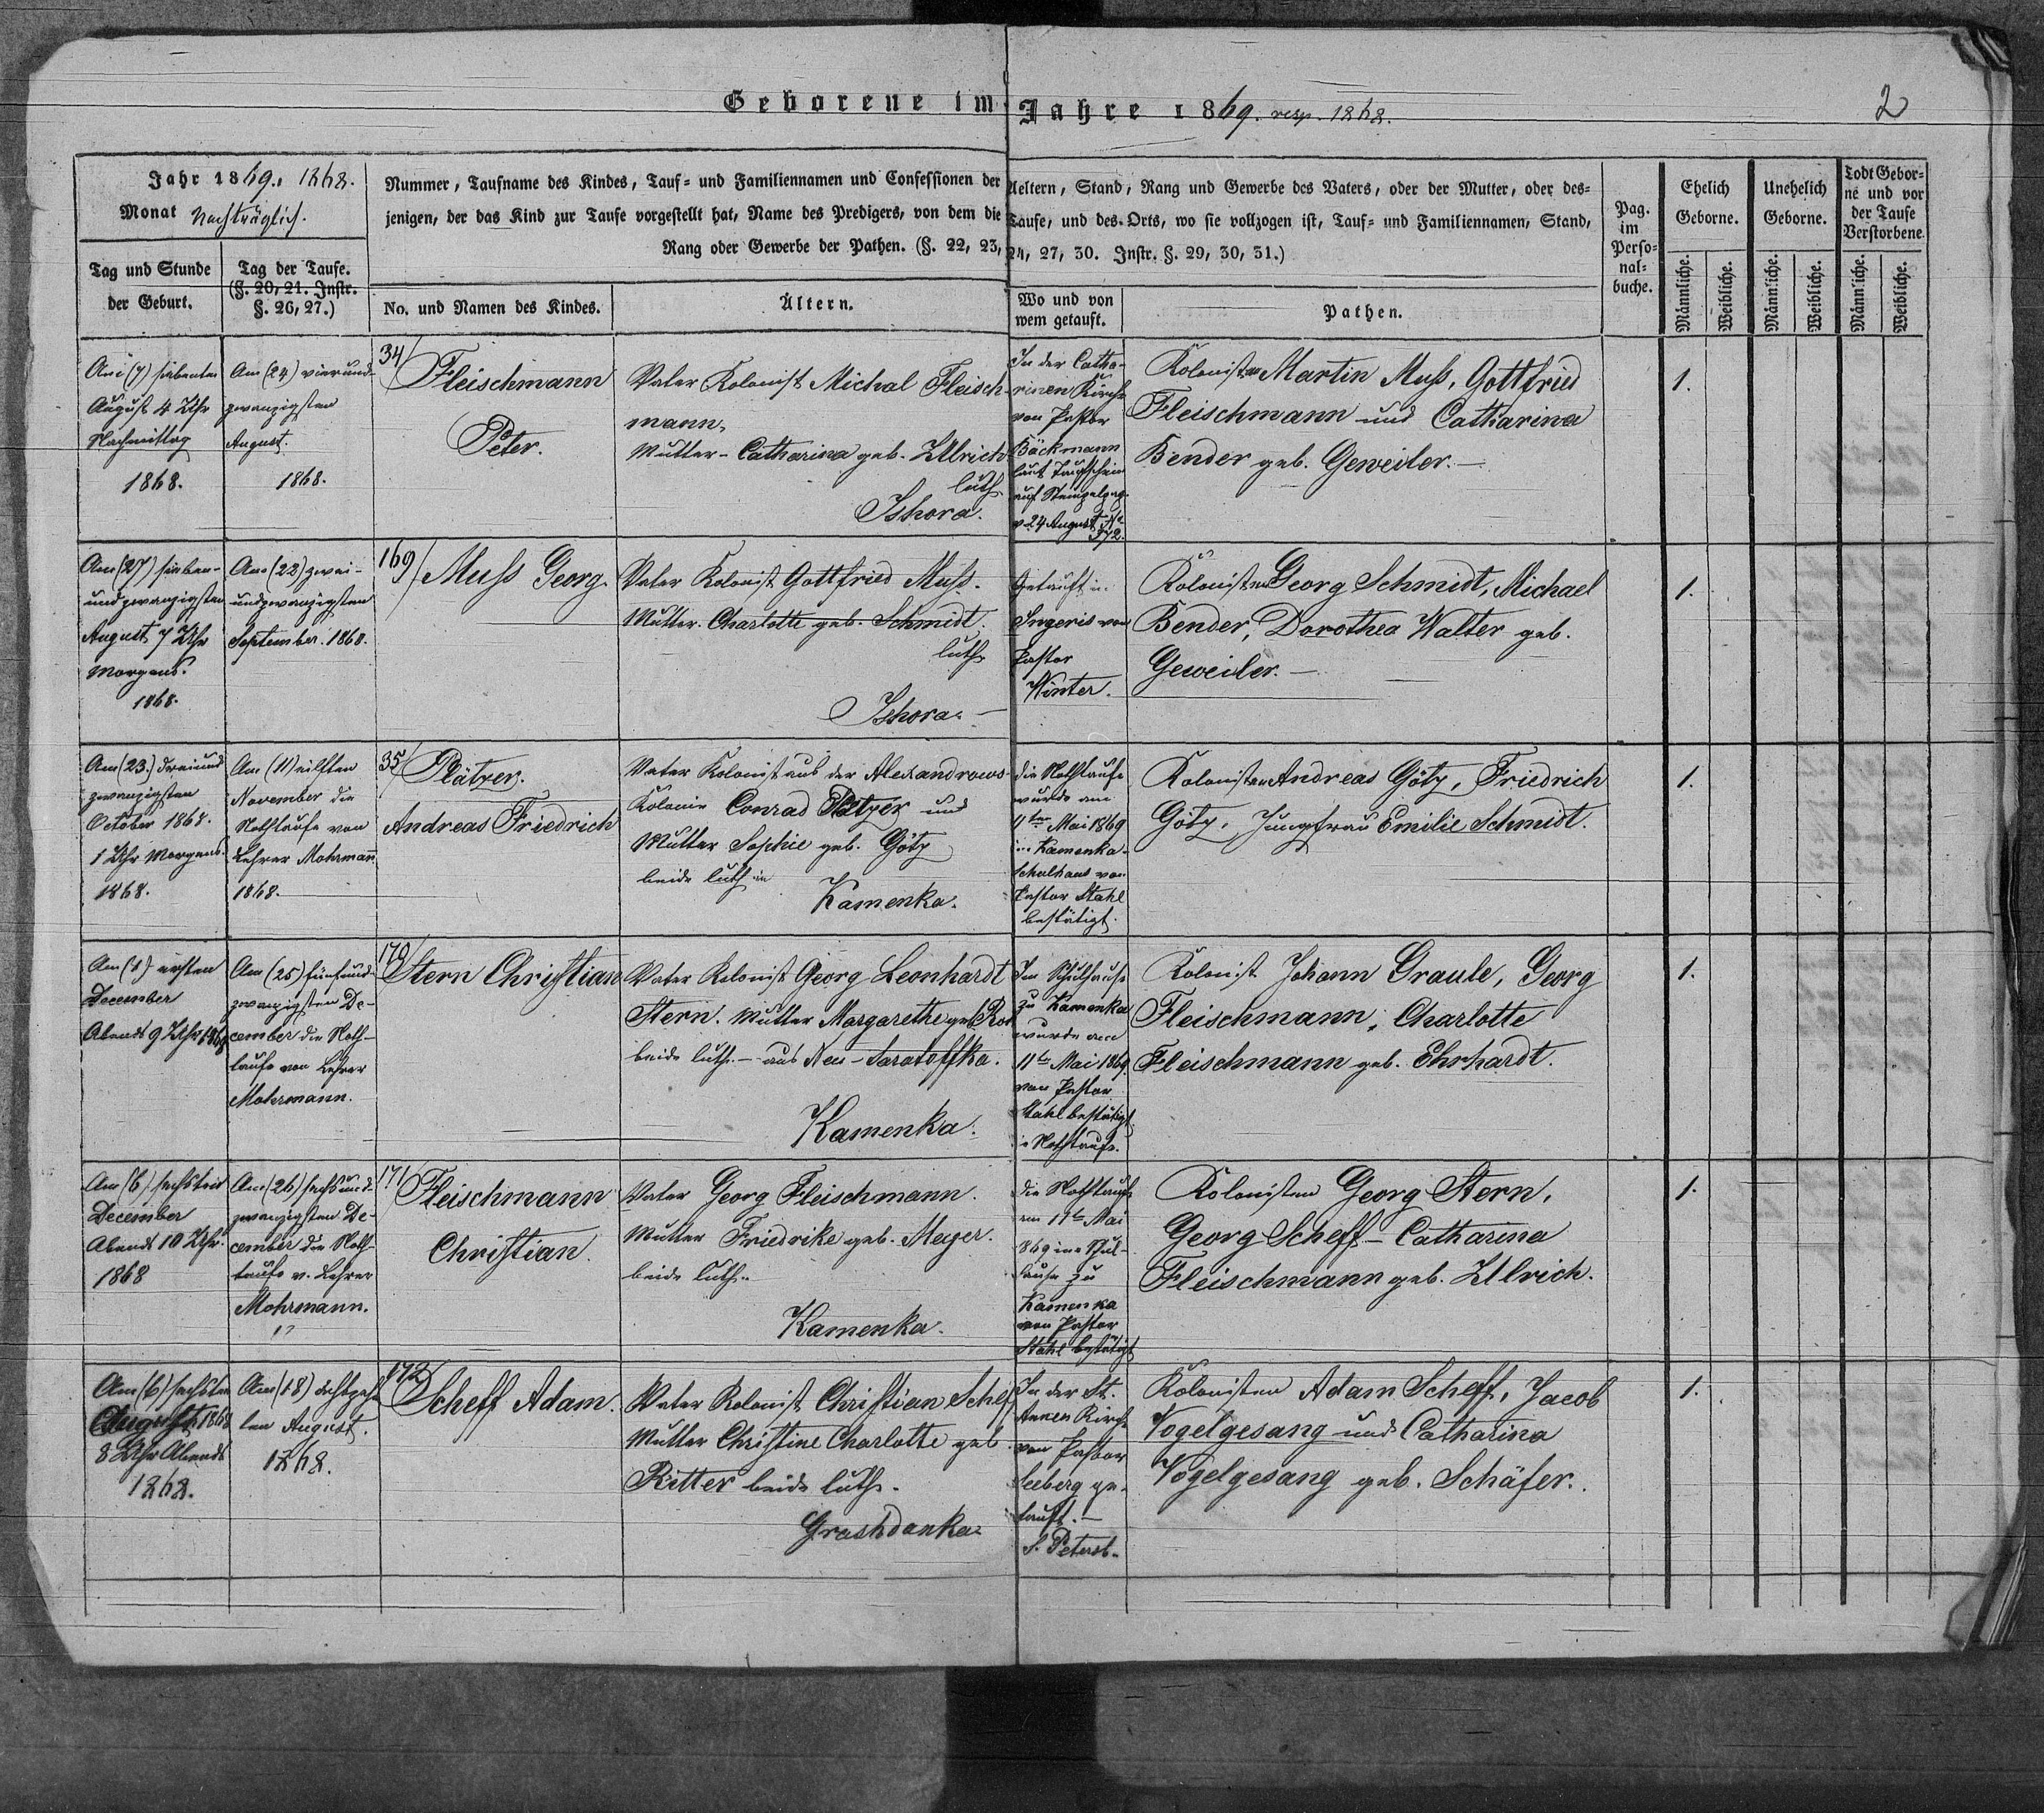 Geborene im Jahre 1869. resp. 1868.
2
Jahr 1869. 1868.
Monat Nachträglich.
Nummer, Taufname des Kindes, Tauf- und Familiennamen und Confessionen der Aeltern, Stand, Rang und Gewerbe des Vaters, oder der Mutter, oder des-
jenigen, der das Kind zur Taufe vorgestellt hat, Name des Predigers, von dem die Taufe, und des Orts, wo sie vollzogen ist, Tauf- und Familiennamen, Stand,
Rang oder Gewerbe der Pathen. (§. 22, 23, 24, 27, 30. Instr. §. 29, 30, 31.)
Pag.
im
Perso-
nal-
buche.
Ehelich
Geborne.
Unehelich
Geborne.
Todt Gebor-
ne und vor
der Taufe
Verstorbene.
Tag und Stunde
der Geburt.
Tag der Taufe.
(§. 20, 21. Instr.
§. 26, 27.)
No. und Namen des Kindes.
Ältern.
Wo und von
wem getauft.
Pathen.
Männliche.
Weibliche.
Männliche.
Weibliche.
Männliche.
Weibliche.
Am (7) siebenten
August 4 Uhr
Nachmittag
1868.
Am (24) vierund-
zwanzigsten
August.
1868.
34/
Fleischmann
Peter.
Vater Kolonist Michal Fleisch-
mann,
Mutter - Catharina geb. Ullrich
luth.
Ishora.
In der Catha-
rinen Kirche
von Pastor
Bäckmann
laut Taufschein
auf Stempelpap.
v 24 August No
372.
Kolonisten Martin Muß, Gottfried
Fleischmann und Catharina
Bender geb. Geweiler. -
1.
Am (27) sieben-
undzwanzigsten
August 7 Uhr
Morgens.
1868.
Am (22) zwei-
undzwanzigsten
September. 1868.
169/ Muß Georg.
Vater Kolonist Gottfried Muß.
Mutter. Charlotte geb. Schmidt.
luth.
Ishora. -
Getauft in
Ingeris von
Pastor
Winter.
Kolonisten Georg Schmidt, Michael
Bender, Dorothea Walter geb.
Geweiler. -
1.
Am (23.) dreiund
zwanzigsten
October 1868.
1 Uhr Morgens.
1868.
Am (11) eilften
November die
Nothtaufe von
Lehrer Mohrmann
1868.
35/
Plätzer.
Andreas Friedrich
Vater Kolonist aus der Alexandrows-
Kolonie Conrad Plätzer und
Mutter Sophie geb. Götz
beide luth. in
Kamenka.
die Nothtaufe
wurde am
11ten Mai 1869
in Kamenka-
Schulhaus von
Pastor Stahl
bestätigt.
Kolonisten Andreas Götz, Friedrich
Götz, Jungfrau Emilie Schmidt.
1.
Am (1) ersten
December
Abends 9 Uhr 1868
Am (25) fünfund-
zwanzigsten De-
cember die Noth-
taufe von Lehrer
Mohrmann.
170/
Stern Christian
Vater Kolonist Georg Leonhardt
Stern. Mutter Margarethe geb.
beide luth. - aus Neu-Saratoffka.
Kamenka.
Im Schulhause
zu Kamenka
wurde am
11ten Mai 1869.
von Pastor
Stahl bestätigt
die Nothtaufe.
Kolonist Johann Graule, Georg
Fleischmann, Charlotte
Fleischmann geb. Ehrhardt.
1.
Am (6) sechsten
December
Abends 10 Uhr.
1868
Am (26) sechsund-
zwanzigsten De-
cember die Noth-
taufe v. Lehrer
Mohrmann.
171/
Fleischmann
Christian.
Vater Georg Fleischmann.
Mutter Friedrike geb. Meyer.
beide luth.
Kamenka.
die Nothtaufe
am 11ten Mai
869 im Schul-
hause zu
Kamenka
von Pastor
Stahl bestätigt
Kolonisten Georg Stern,
Georg Scheff - Catharina
Fleischmann geb. Ullrich.
1.
Am (6) sechsten
August 1868
8 Uhr Abends
1868.
Am (18) achtzehn
ten August.
1868.
172/
Scheff Adam.
Vater Kolonist Christian Scheff
Mutter Christine Charlotte geb.
Ritter beide luth.
Grashdanka.
In der St.
Annen Kirche
von Pastor
Seeberg ge-
tauft. -
S. Petersb.
Kolonisten Adam Scheff, Jacob
Vogelgesang und Catharina
Vogelgesang geb. Schäfer.
1.